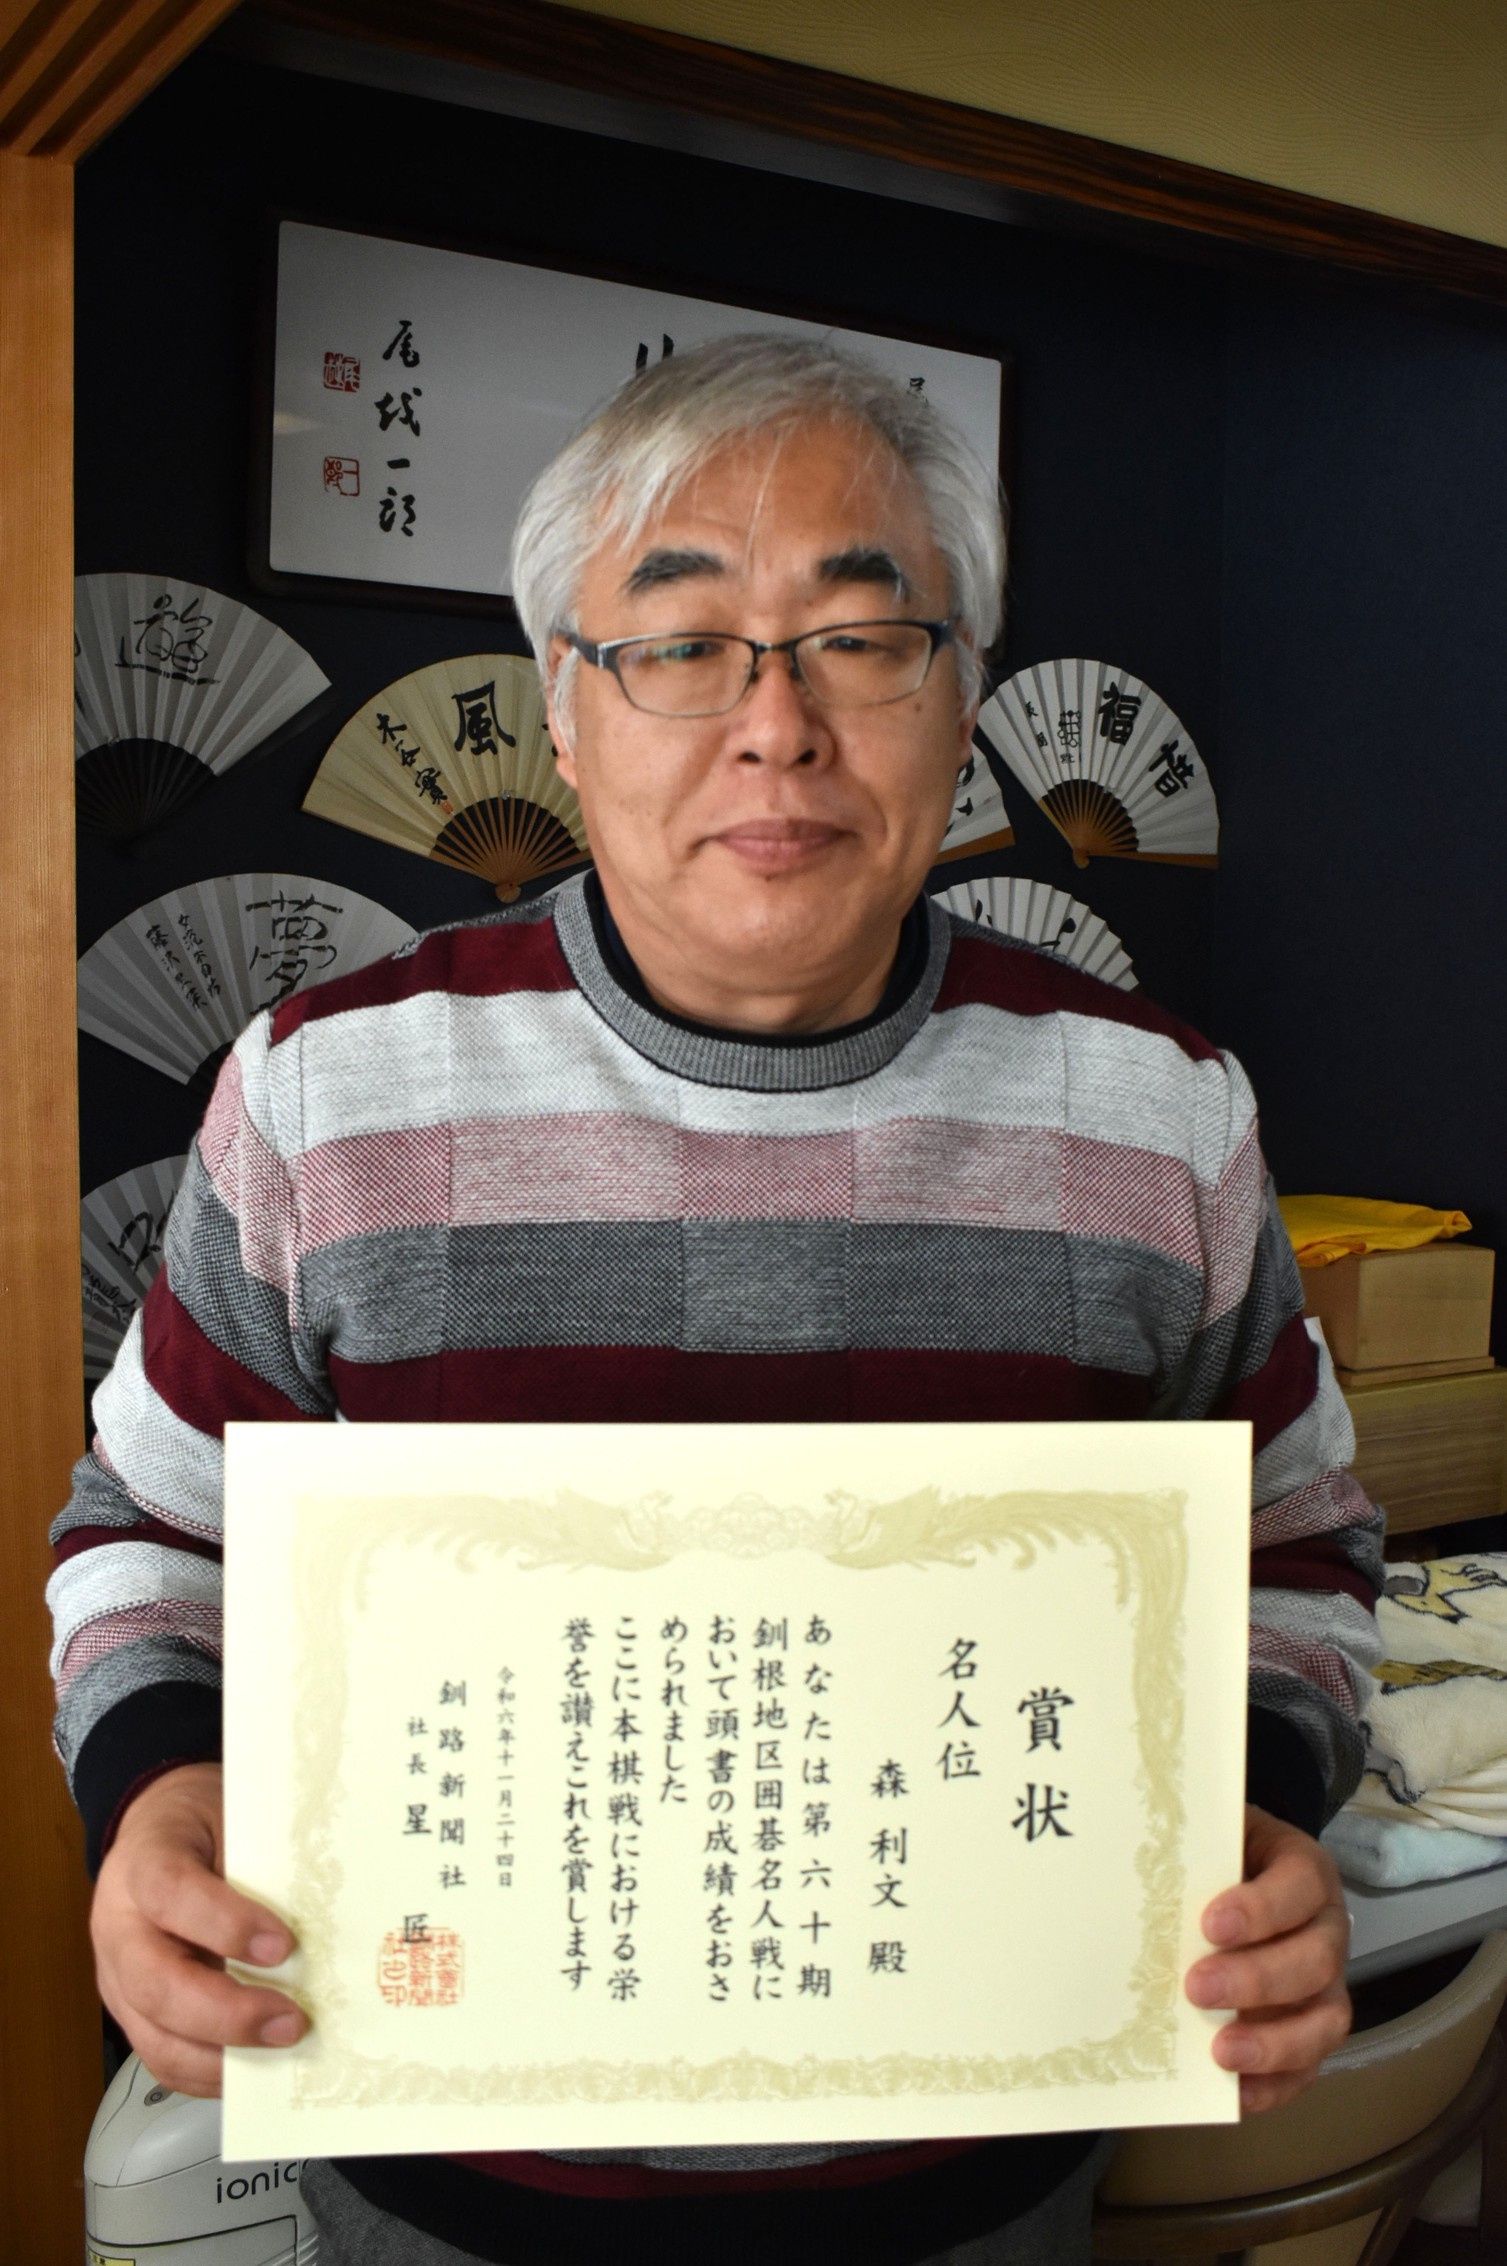 賞状
名人位
森利文殿
あなたは第六十期
釧根地区囲碁名人戦に
おいて頭書の成績をおさ
められました
ここに本棋戦における栄
誉を讃えこれを賞します
令和六年十一月二十四日
釧路新聞社
社長 星 匠
株式会社
釧路新聞
社之印
尾越一郎
遊
風
木谷實
惜福
夢
ionic